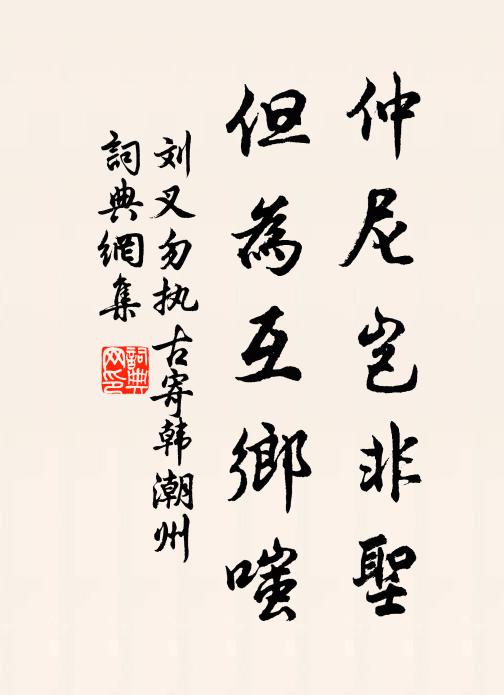 仲尼岂非聖
但為互鄉嗤
刘叉勿执古寄韩潮州
詞典網集
詞典网印